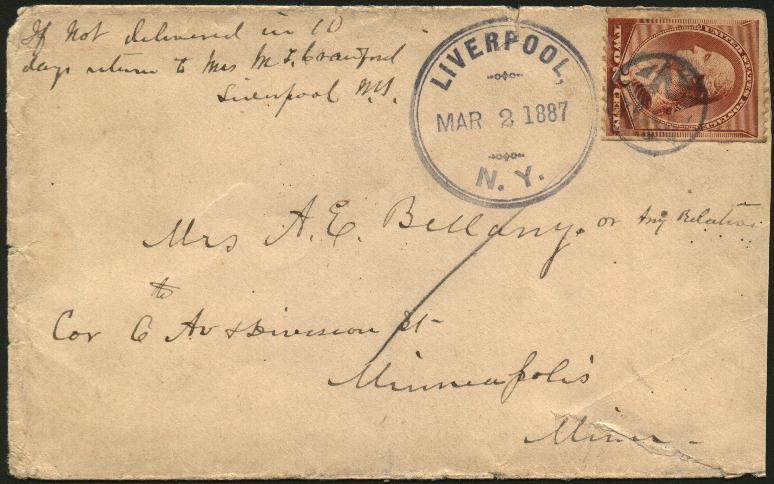 If Not delivered in 10
days return to Mrs M. T. Crawford
Liverpool N.Y.
LIVERPOOL,
MAR 2 1887
N. Y.
UNITED STATES POSTAGE
TWO CENTS
Mrs A. E. Bellany. or Any Relative
to
Cor 6 Av & Division St
Minneapolis
Minn